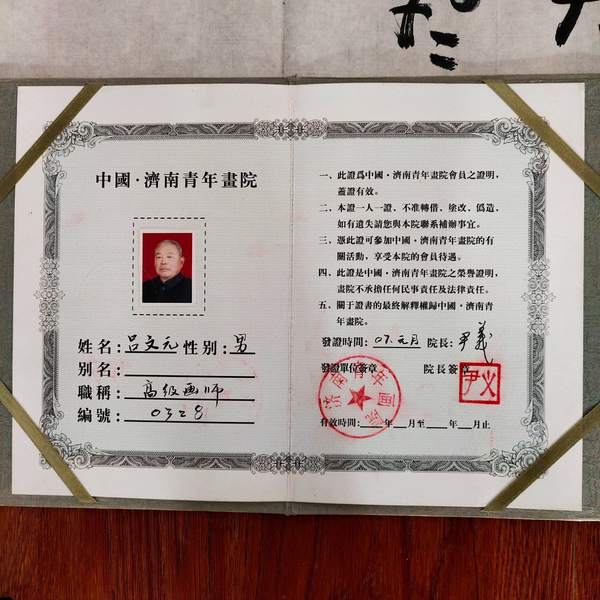 中國·濟南青年畫院
姓名：吕文元 性别：男
别名：
職稱：高级画师
編號：0328
一、此證爲中國·濟南青年畫院會員之證明，
蓋證有效。
二、本證一人一證、不准轉借、塗改、僞造、
如有遺失請您與本院聯系補辦事宜。
三、憑此證可參加中國·濟南青年畫院的有
關活動，享受本院的會員待遇。
四、此證是中國·濟南青年畫院之榮譽證明，
畫院不承擔任何民事責任及法律責任。
五、關于證書的最終解釋權歸中國·濟南青
年畫院。
發證時間：07.元月 院長：尹義
發證單位簽章 院長簽章
济南青年画院
尹义
有效時間：年 月至 年 月止